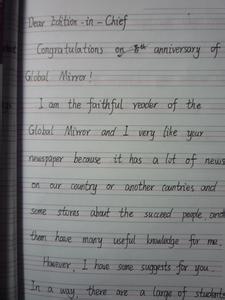 Dear Edition-in-Chief
Congratulations on th anniversary of
Global Mirror!
I am the faithful reader of the
Global Mirror and I very like your
newspaper because it has a lot of news
on our country or another countries and
some stores about the succeed people, and
them have many useful knowledge for me.
However, I have some suggests for you.
In a way, there are a large of students